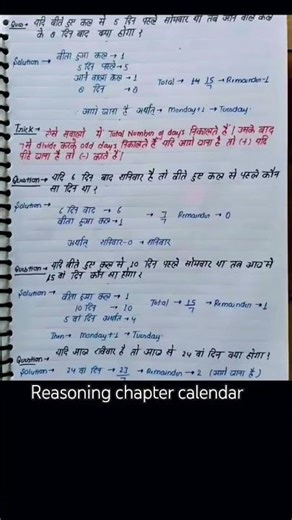 Que → यदि बीते हुए कल से 5 दिन पहले सोमवार था तब आने वाले कल
के 8 दिन बाद क्या होगा ?
Solution → बीता हुआ कल → 1
5 दिन पहले → 5
आने वाला कल → 1
8 दिन → 8
Total → 14 15/7 → Remainder → 1
आगे जाना है अर्थात् → Monday+1 → Tuesday
Trick → ऐसे सवालों में Total Number of days निकालते हैं । उसके बाद
7 से divide करके odd days निकालते हैं यदि आगे जाना है तो (+) यदि
पीछे जाना है तो (-) करते हैं ।
Question → यदि 6 दिन बाद शनिवार है तो बीते हुए कल से पहले कौन
सा दिन था ?
Solution →
6 दिन बाद → 6
बीता हुआ कल → 1
→ 7/7 Remainder → 0
अर्थात् शनिवार-0 → शनिवार
Question → यदि बीते हुए कल से 10 दिन पहले सोमवार था तब आज से
15 वां दिन कौन सा होगा ?
Solution → बीता हुआ कल → 1
10 दिन → 10
5 वां दिन अर्थात् → 4
Total → 15/7 → Remainder → 1
Then → Monday+1 → Tuesday
Question → यदि आज रविवार है तो आज से 24 वां दिन क्या होगा ?
Solution → 24 वां दिन → 23/7 → Remainder → 2 (आगे जाना है)
Reasoning chapter calendar